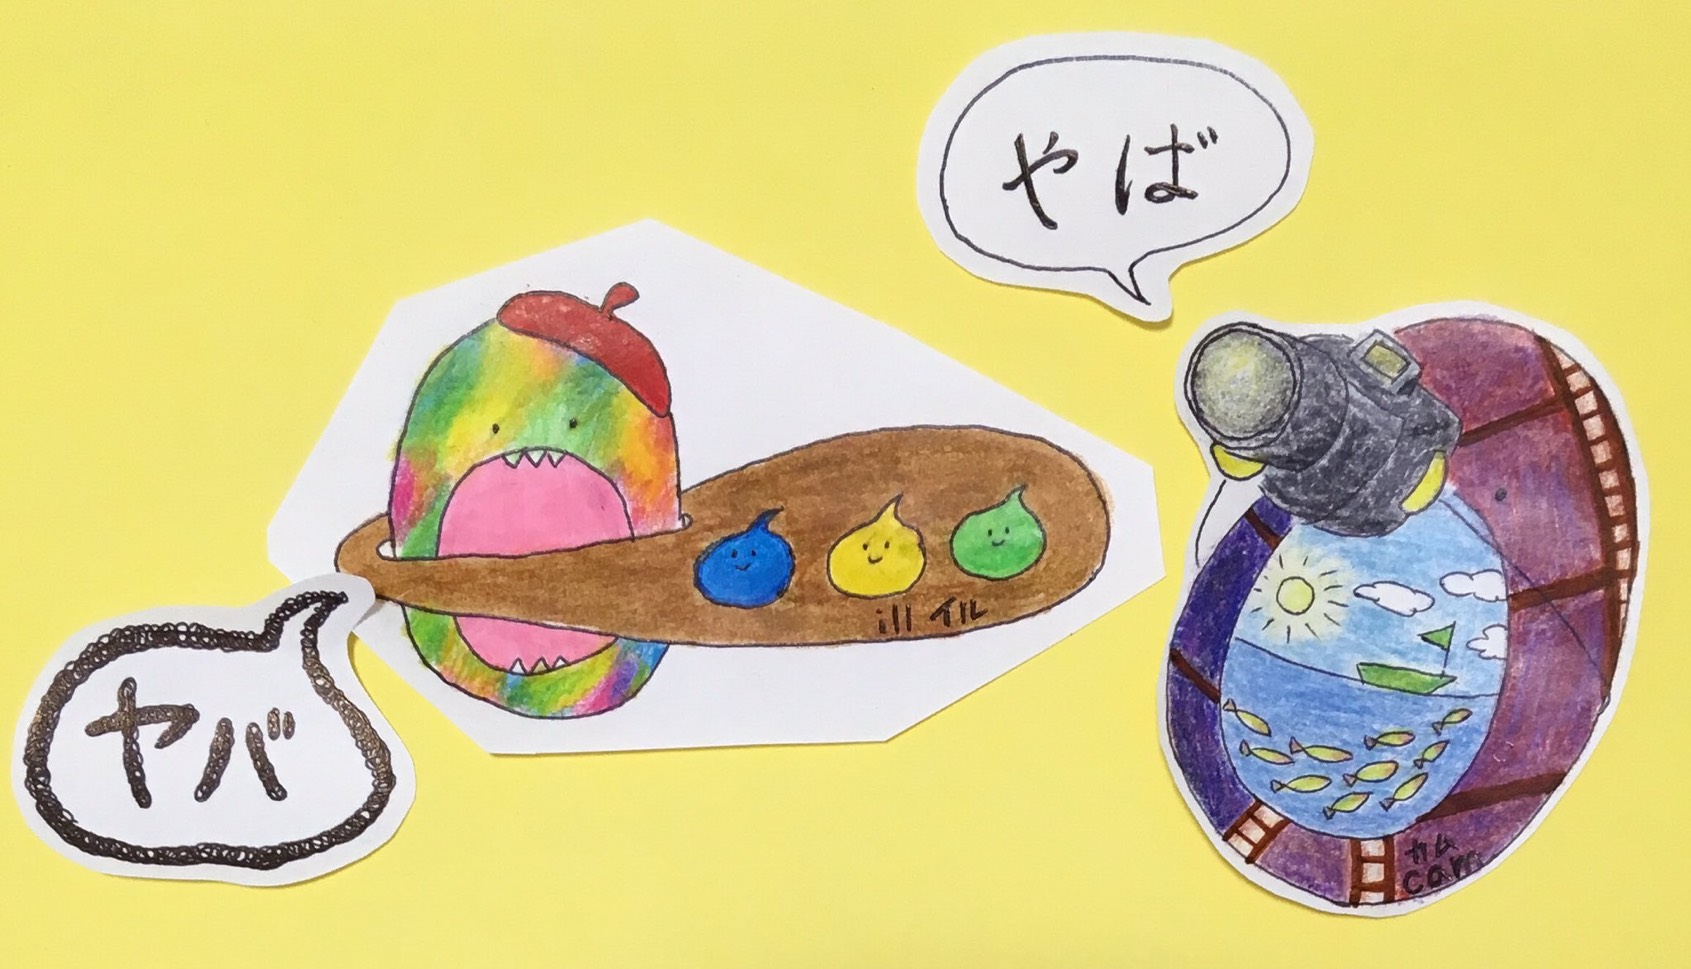 やば
ill イル
ヤバ
カム
cam